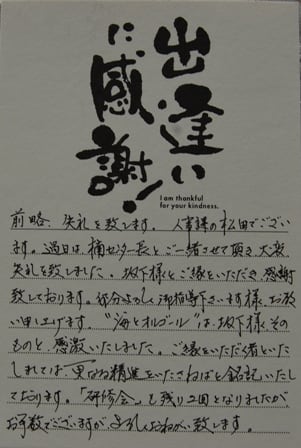 出逢い
に感謝!
I am thankful
for your kindness.
前略、失礼を致します。人事課の松田でござい
ます。過日は、楠センター長とご一緒させて頂き大変
失礼を致しました。坂下様とご縁をいただき感謝
致しております。何分よろしく御指導下さいます様、お願
い申し上げます。"海とオルゴール"は、坂下様、その
ものと感激いたしました。ご縁をいただいた者といた
しましては、更なる精進をいたさねばと銘記いたし
ております。「研修会」も残り2回となりましたが、
お手数でございますがよろしくおねがい致します。